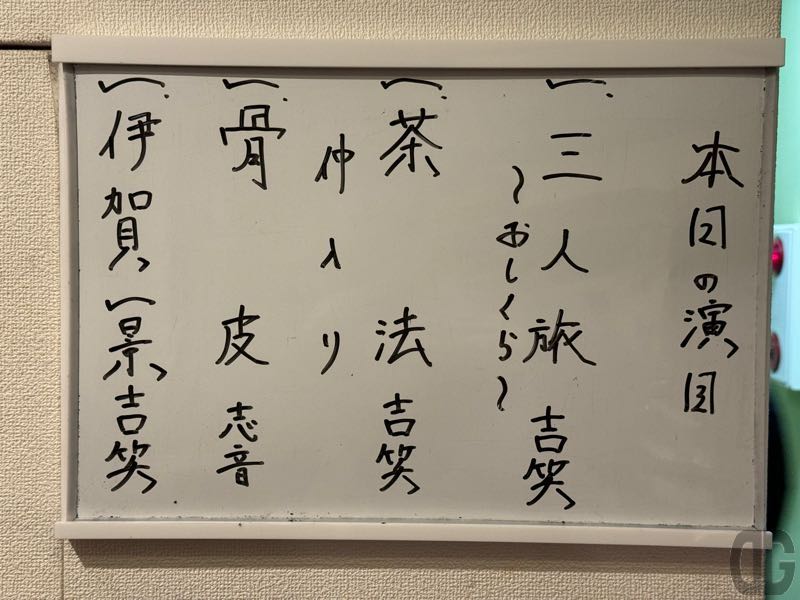 本日の演目
一、三人旅 吉笑
〜おしくら〜
一、茶法 吉笑
仲入り
一、骨皮 志音
一、伊賀一景 吉笑
DG